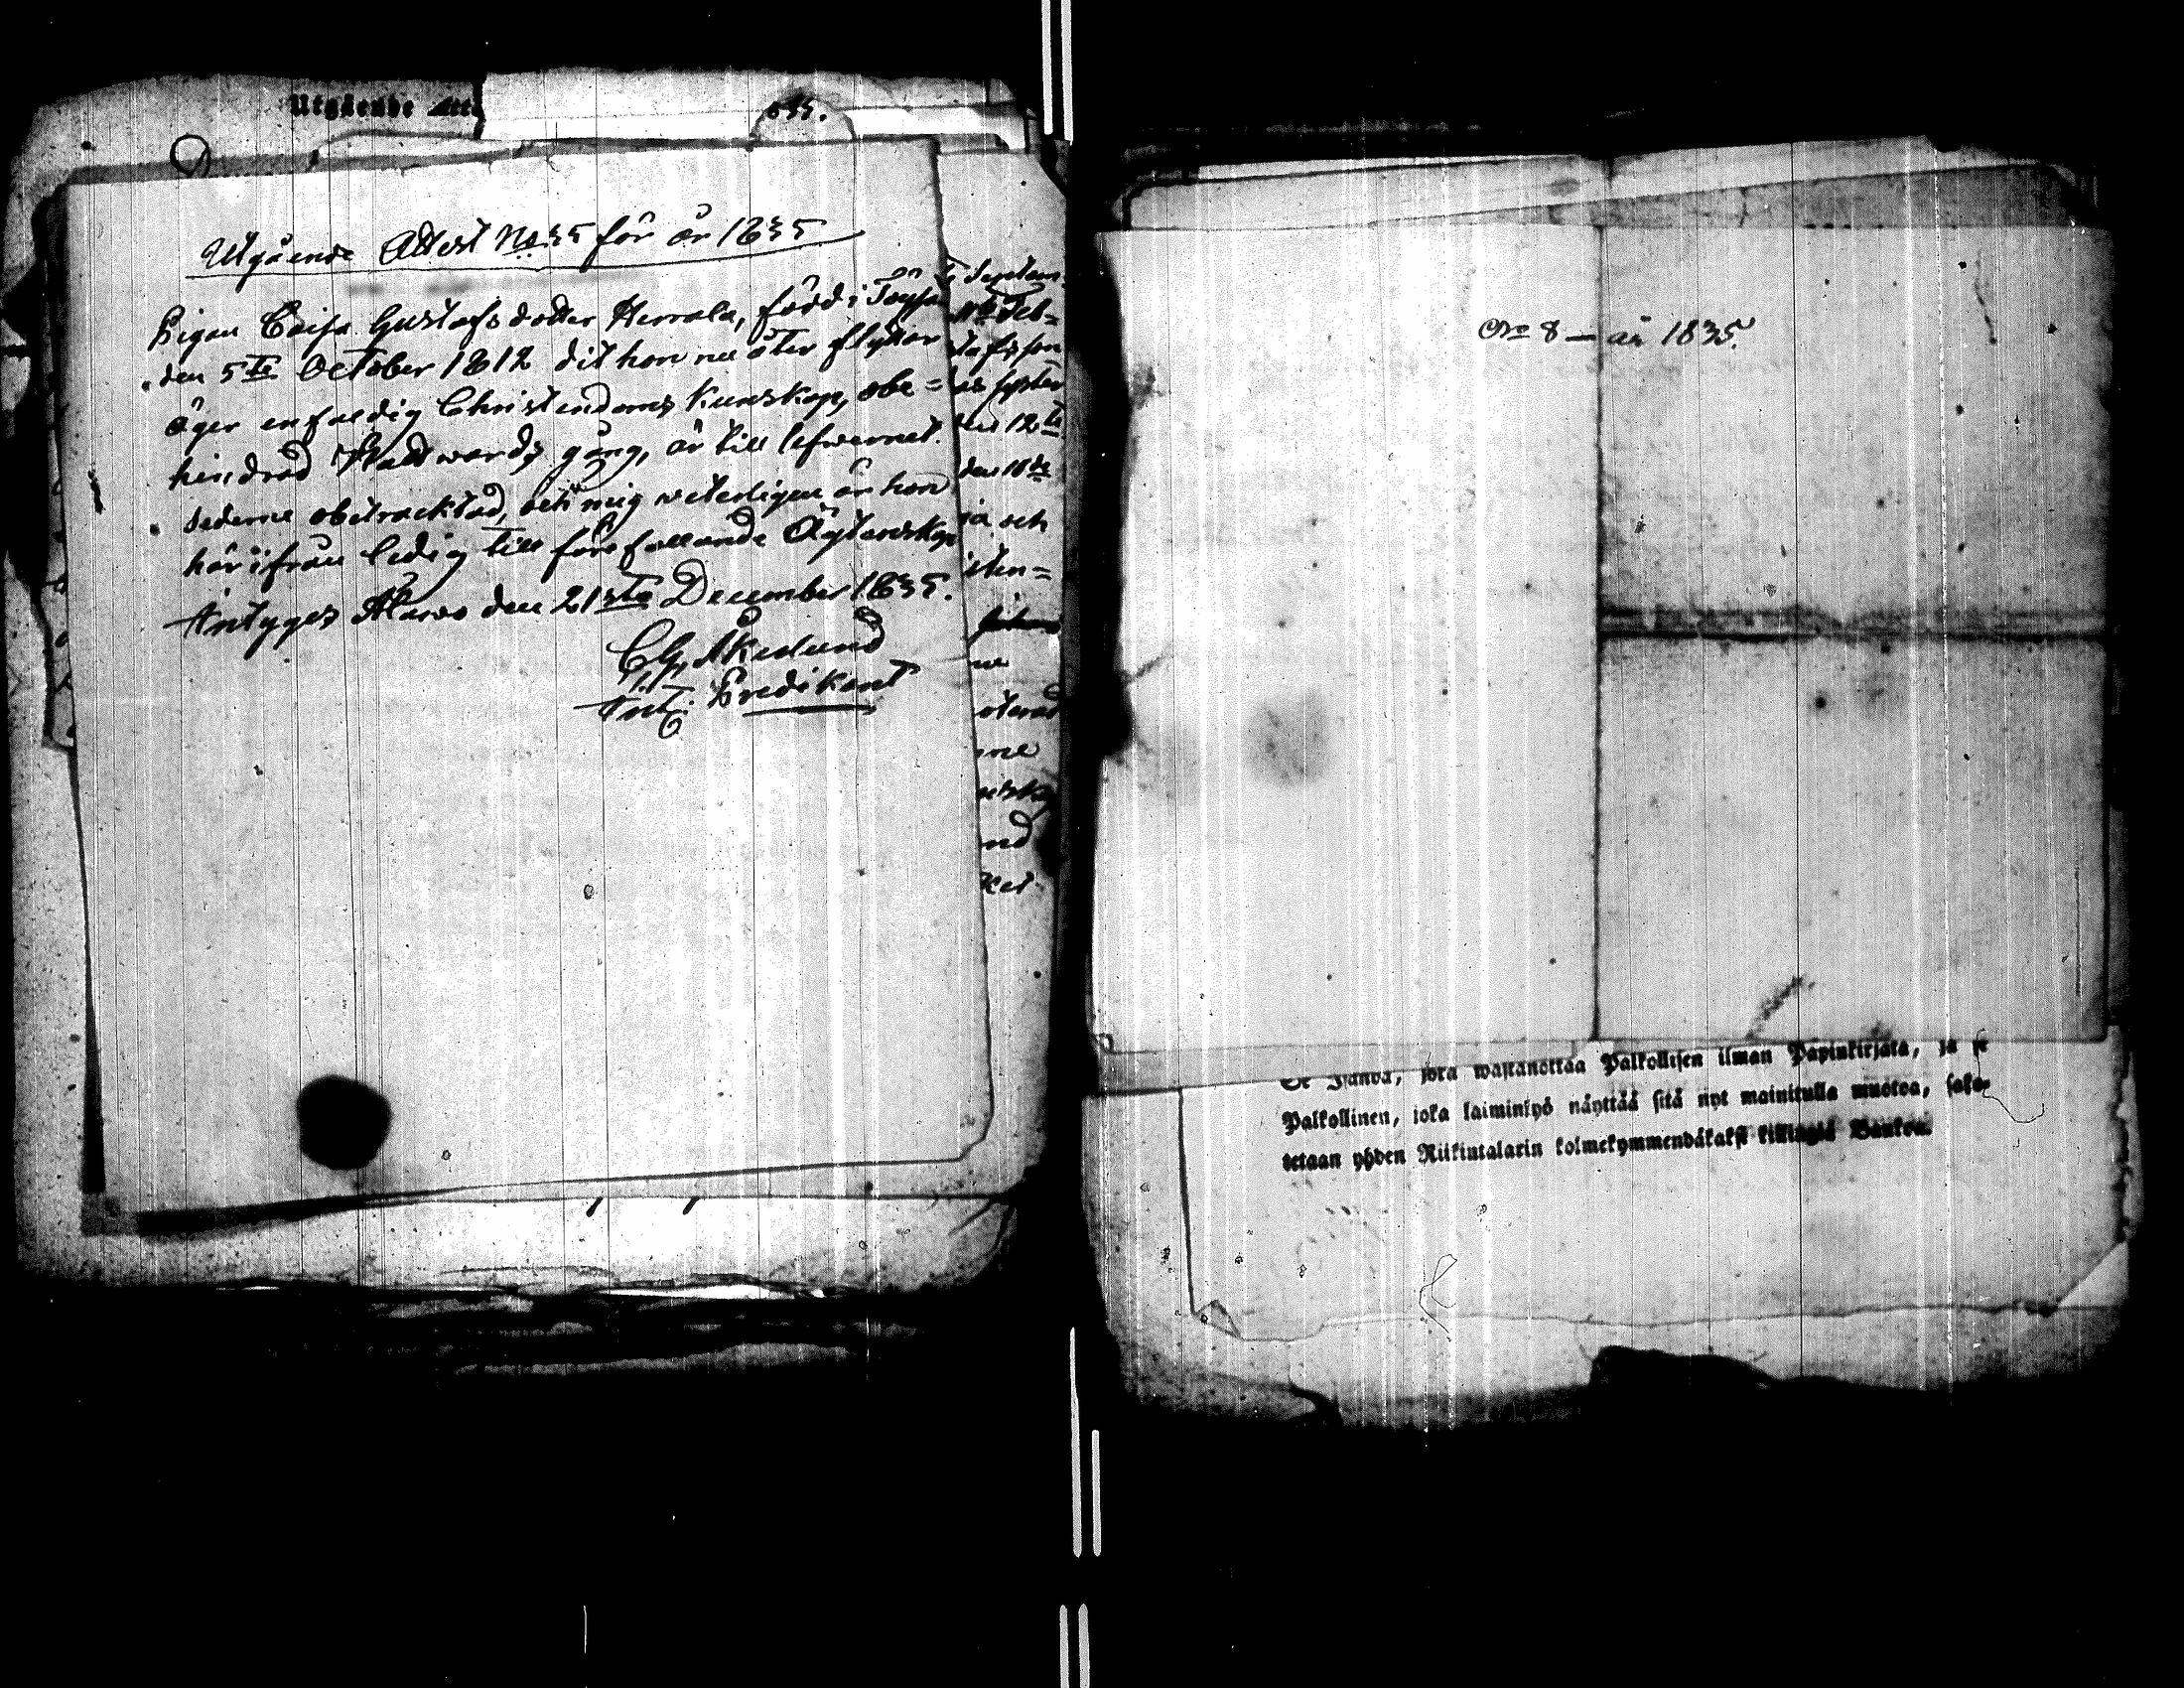 Utgående Atte
835.
Utgående Attest No 35 för år 1835
Pigan Caisa Gustafsdotter Herrala, född i Töysä
den 5te October 1812 dit hon nu åter flyttar
äger enfaldig Christendoms kunskap, obe=
hindrad Nattwards gång, är till lefwernet
sederne obetracktad, och mig veterligen är hon
härifrån ledig till förefallande Ägtenskap
Intygez Alavo den 21sta December 1835.
C G Åkerlund
Predikant
Septem
Feb=
tafsson
syster
den 12te
den 18de
ja och
sten=
ne
oterad
ne
nd
ket
No 8 — år 1835.
Se Isäntä, joka wastanottaa Palkollisen ilman Papinkirjata, ja se
Palkollinen, joka laiminlyö näyttää sitä nyt mainitulla muotoa, sako-
tetaan yhden Riikintalarin kolmekymmendäkaksi killingiä Bankoa.